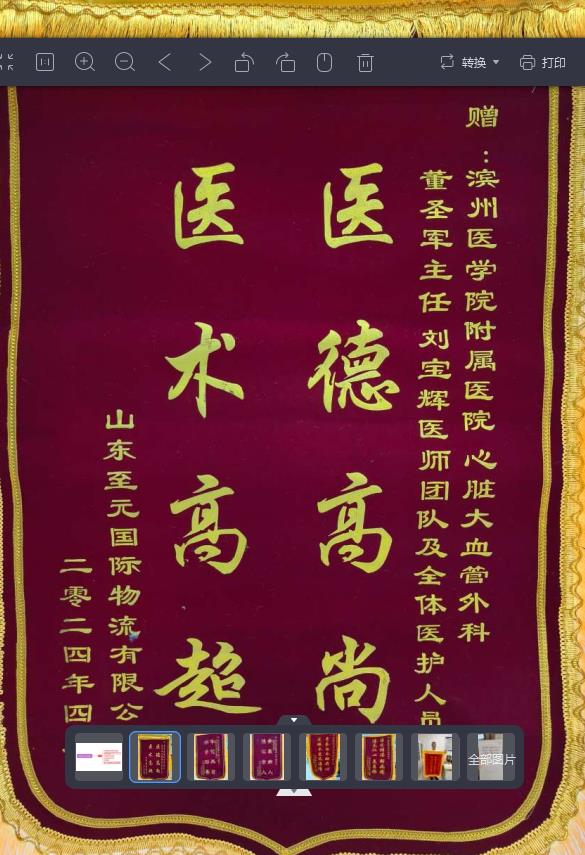 转换
打印
赠：
滨州医学院附属医院 心脏大血管外科
董圣军主任 刘宝辉医师团队及全体医护人员
医德高尚
医术高超
山东至元国际物流有限公
二零二四年四
全部图片